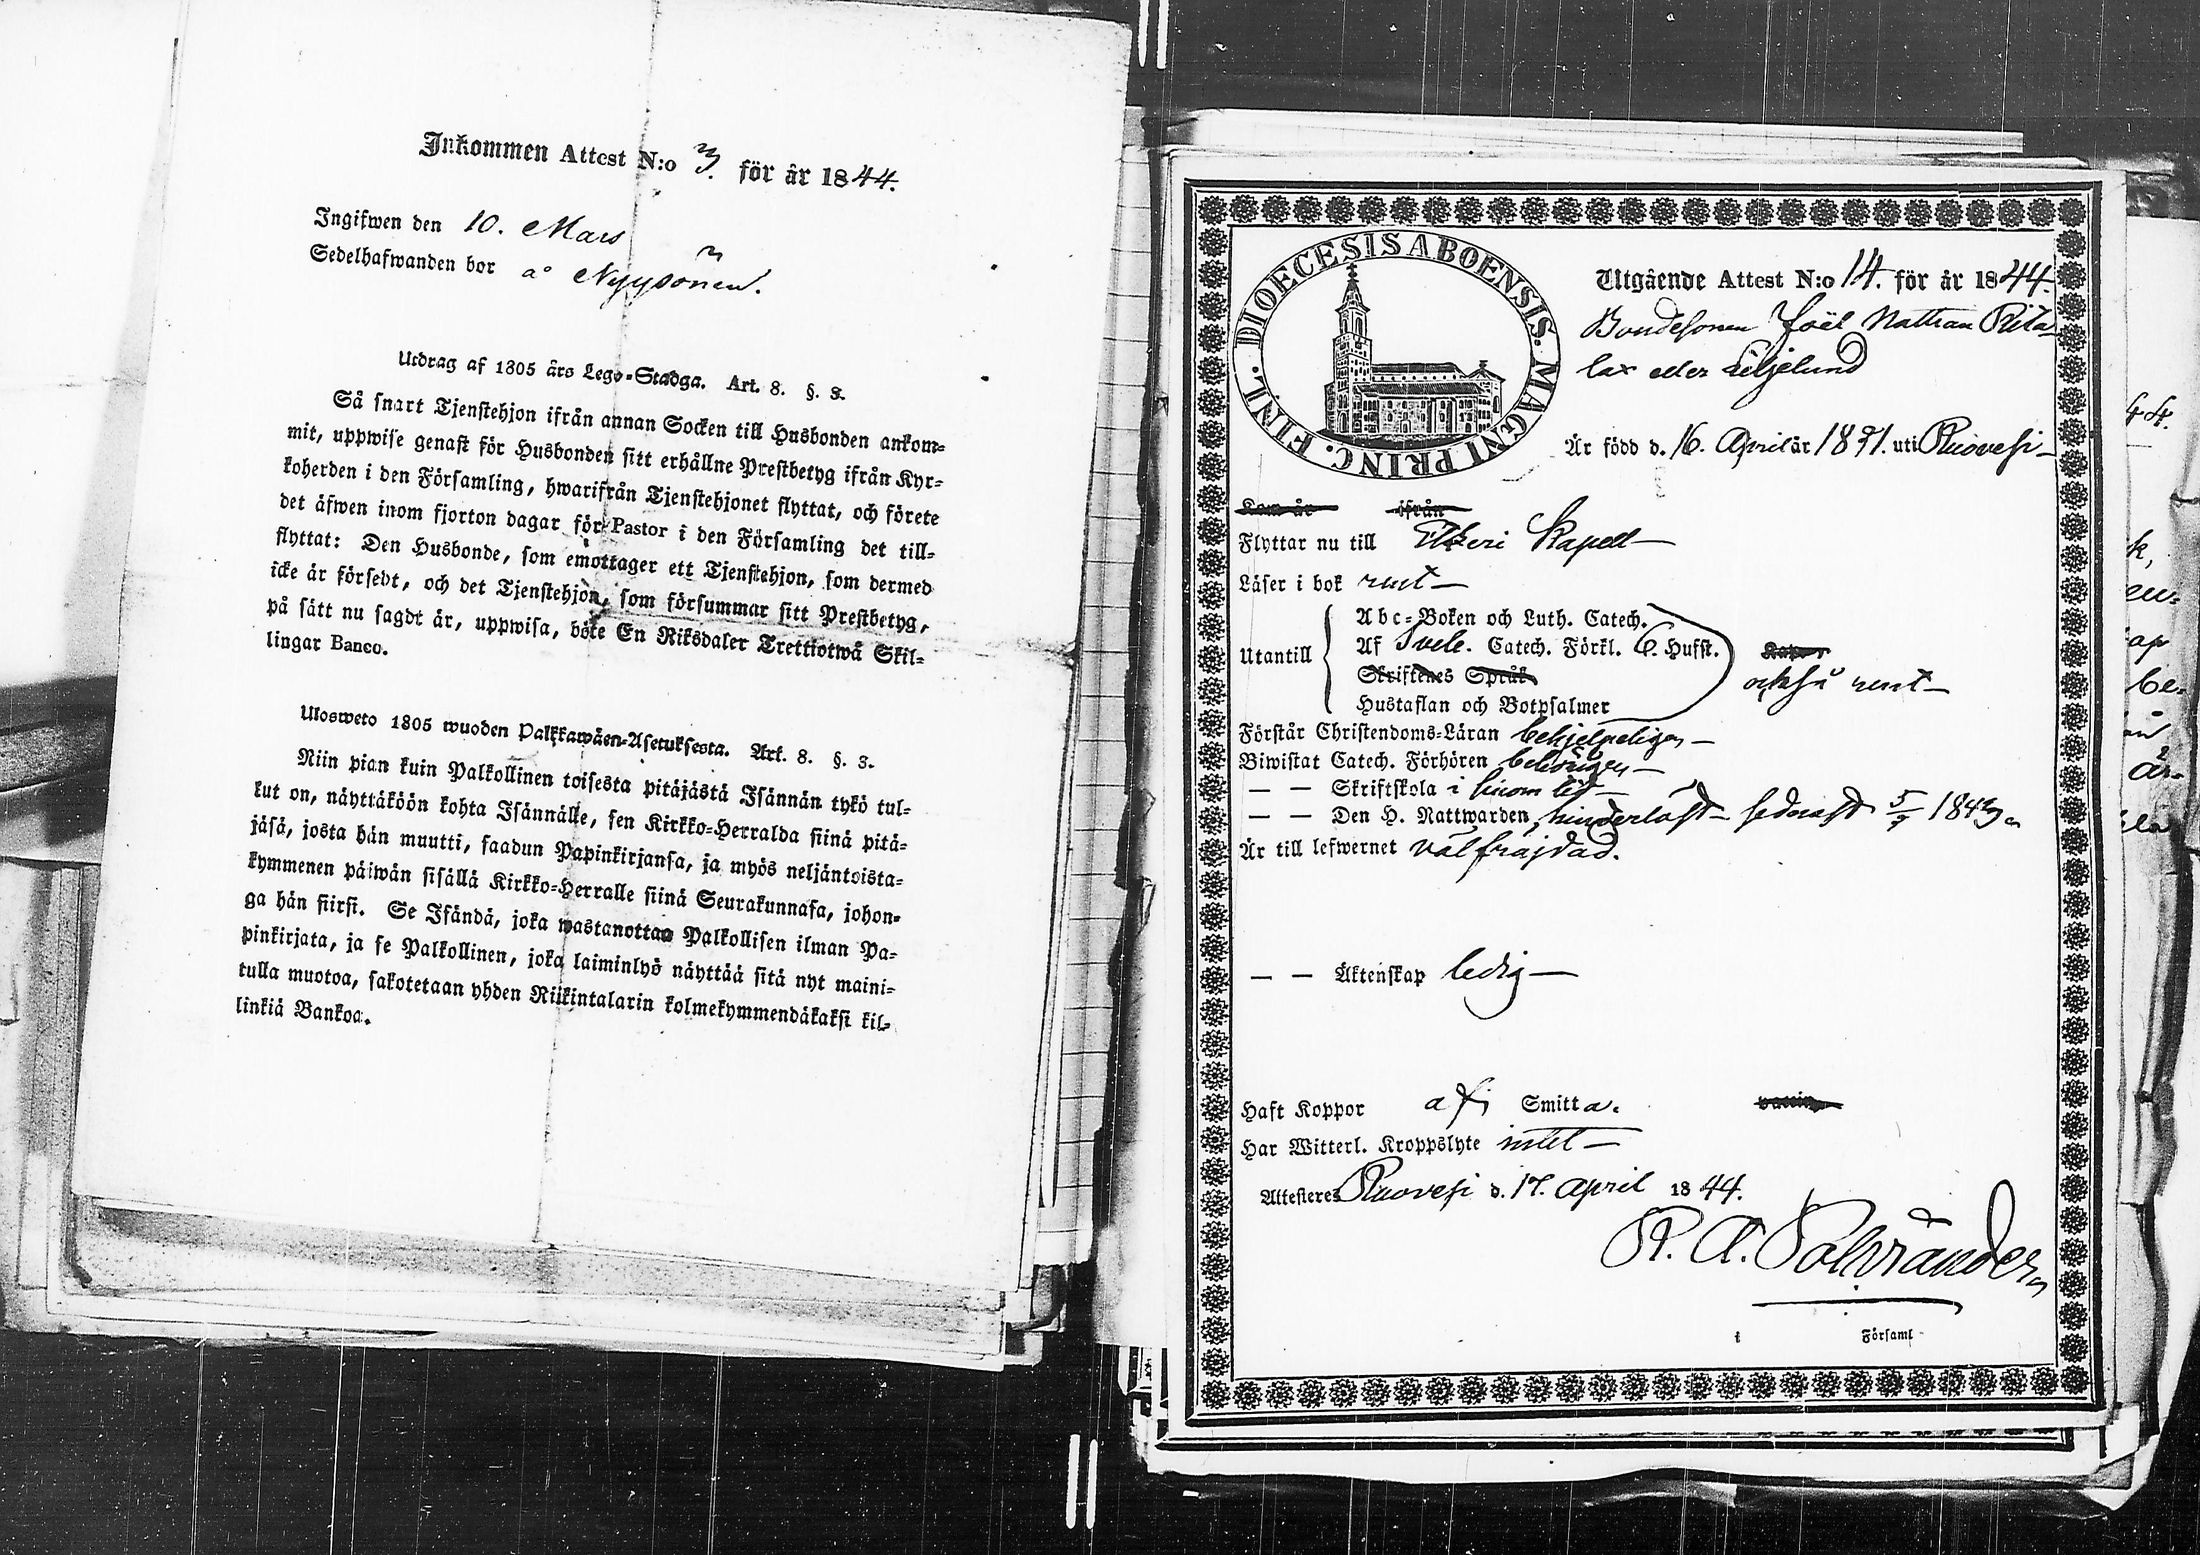 Inkommen Attest N:o 3. för år 1844.
Ingifwen den 10. Mars
Sedelhafwanden bor å Nyysönen.
Utdrag af 1805 års Lego-Stadga. Art. 8. §. 3.
Så snart Tjenstehjon ifrån annan Socken till Husbonden ankom-
mit, uppwise genast för Husbonden sitt erhållne Prestbetyg ifrån Kyr-
koherden i den Församling, hwarifrån Tjenstehjonet flyttat, och förete
det äfwen inom fjorton dagar för Pastor i den Församling det till-
flyttat: Den Husbonde, som emottager ett Tjenstehjon, som dermed
icke är försedt, och det Tjenstehjon, som försummar sitt Prestbetyg,
på sätt nu sagdt är, uppwisa, böte En Riksdaler Trettiotwå Skil-
lingar Banco.
Ulosweto 1805 wuoden Palkkawäen-Asetuksesta. Art. 8. §. 3.
Niin pian kuin Palkollinen toisesta pitäjästä Isännän tykö tul-
lut on, näyttäköön kohta Isännälle, sen Kirkko-Herralda siinä pitä-
jäsä, josta hän muutti, saadun Papinkirjansa, ja myös neljäntoista-
kymmenen päiwän sisällä Kirkko-Herralle siinä Seurakunnasa, johon-
ga hän siirsi. Se Isändä, joka wastanottaa Palkollisen ilman Pa-
pinkirjata, ja se Palkollinen, joka laiminlyö näyttää sitä nyt maini-
tulla muotoa, sakotetaan yhden Riikintalarin kolmekymmendäkaksi kil-
linkiä Bankoa.
DIOECESIS ABOENSIS. MAGNI PRINC. FINL.
Utgående Attest N:o 14. för år 1844.
Bondesonen Joël Nathan Rita-
lax eller Liljelund
Är född d. 16. April år 1821. uti Ruovesi
Kom år ifrån
Flyttar nu till Etseri Kapell
Läser i bok rent
Abc-Boken och Luth. Catech.
Utantill Af Sveb. Catech. Förkl. 6. Hufst.
Skriftenes Språk
också rent
Hustaflan och Botpsalmer
Förstår Christendoms-Läran behjelpeligen
Biwistat Catech. Förhören behörigen
— — Skriftskola i sinom tid
— — Den H. Nattwarden, hinderlöst sednast 1843.
Är till lefwernet välfräjdad.
— — Äktenskap ledig
Haft Koppor af Smitta.
Har Witterl. Kroppslyte intet
Attesteres Ruovesi d. 17. April 1844.
R. A.
i Församl